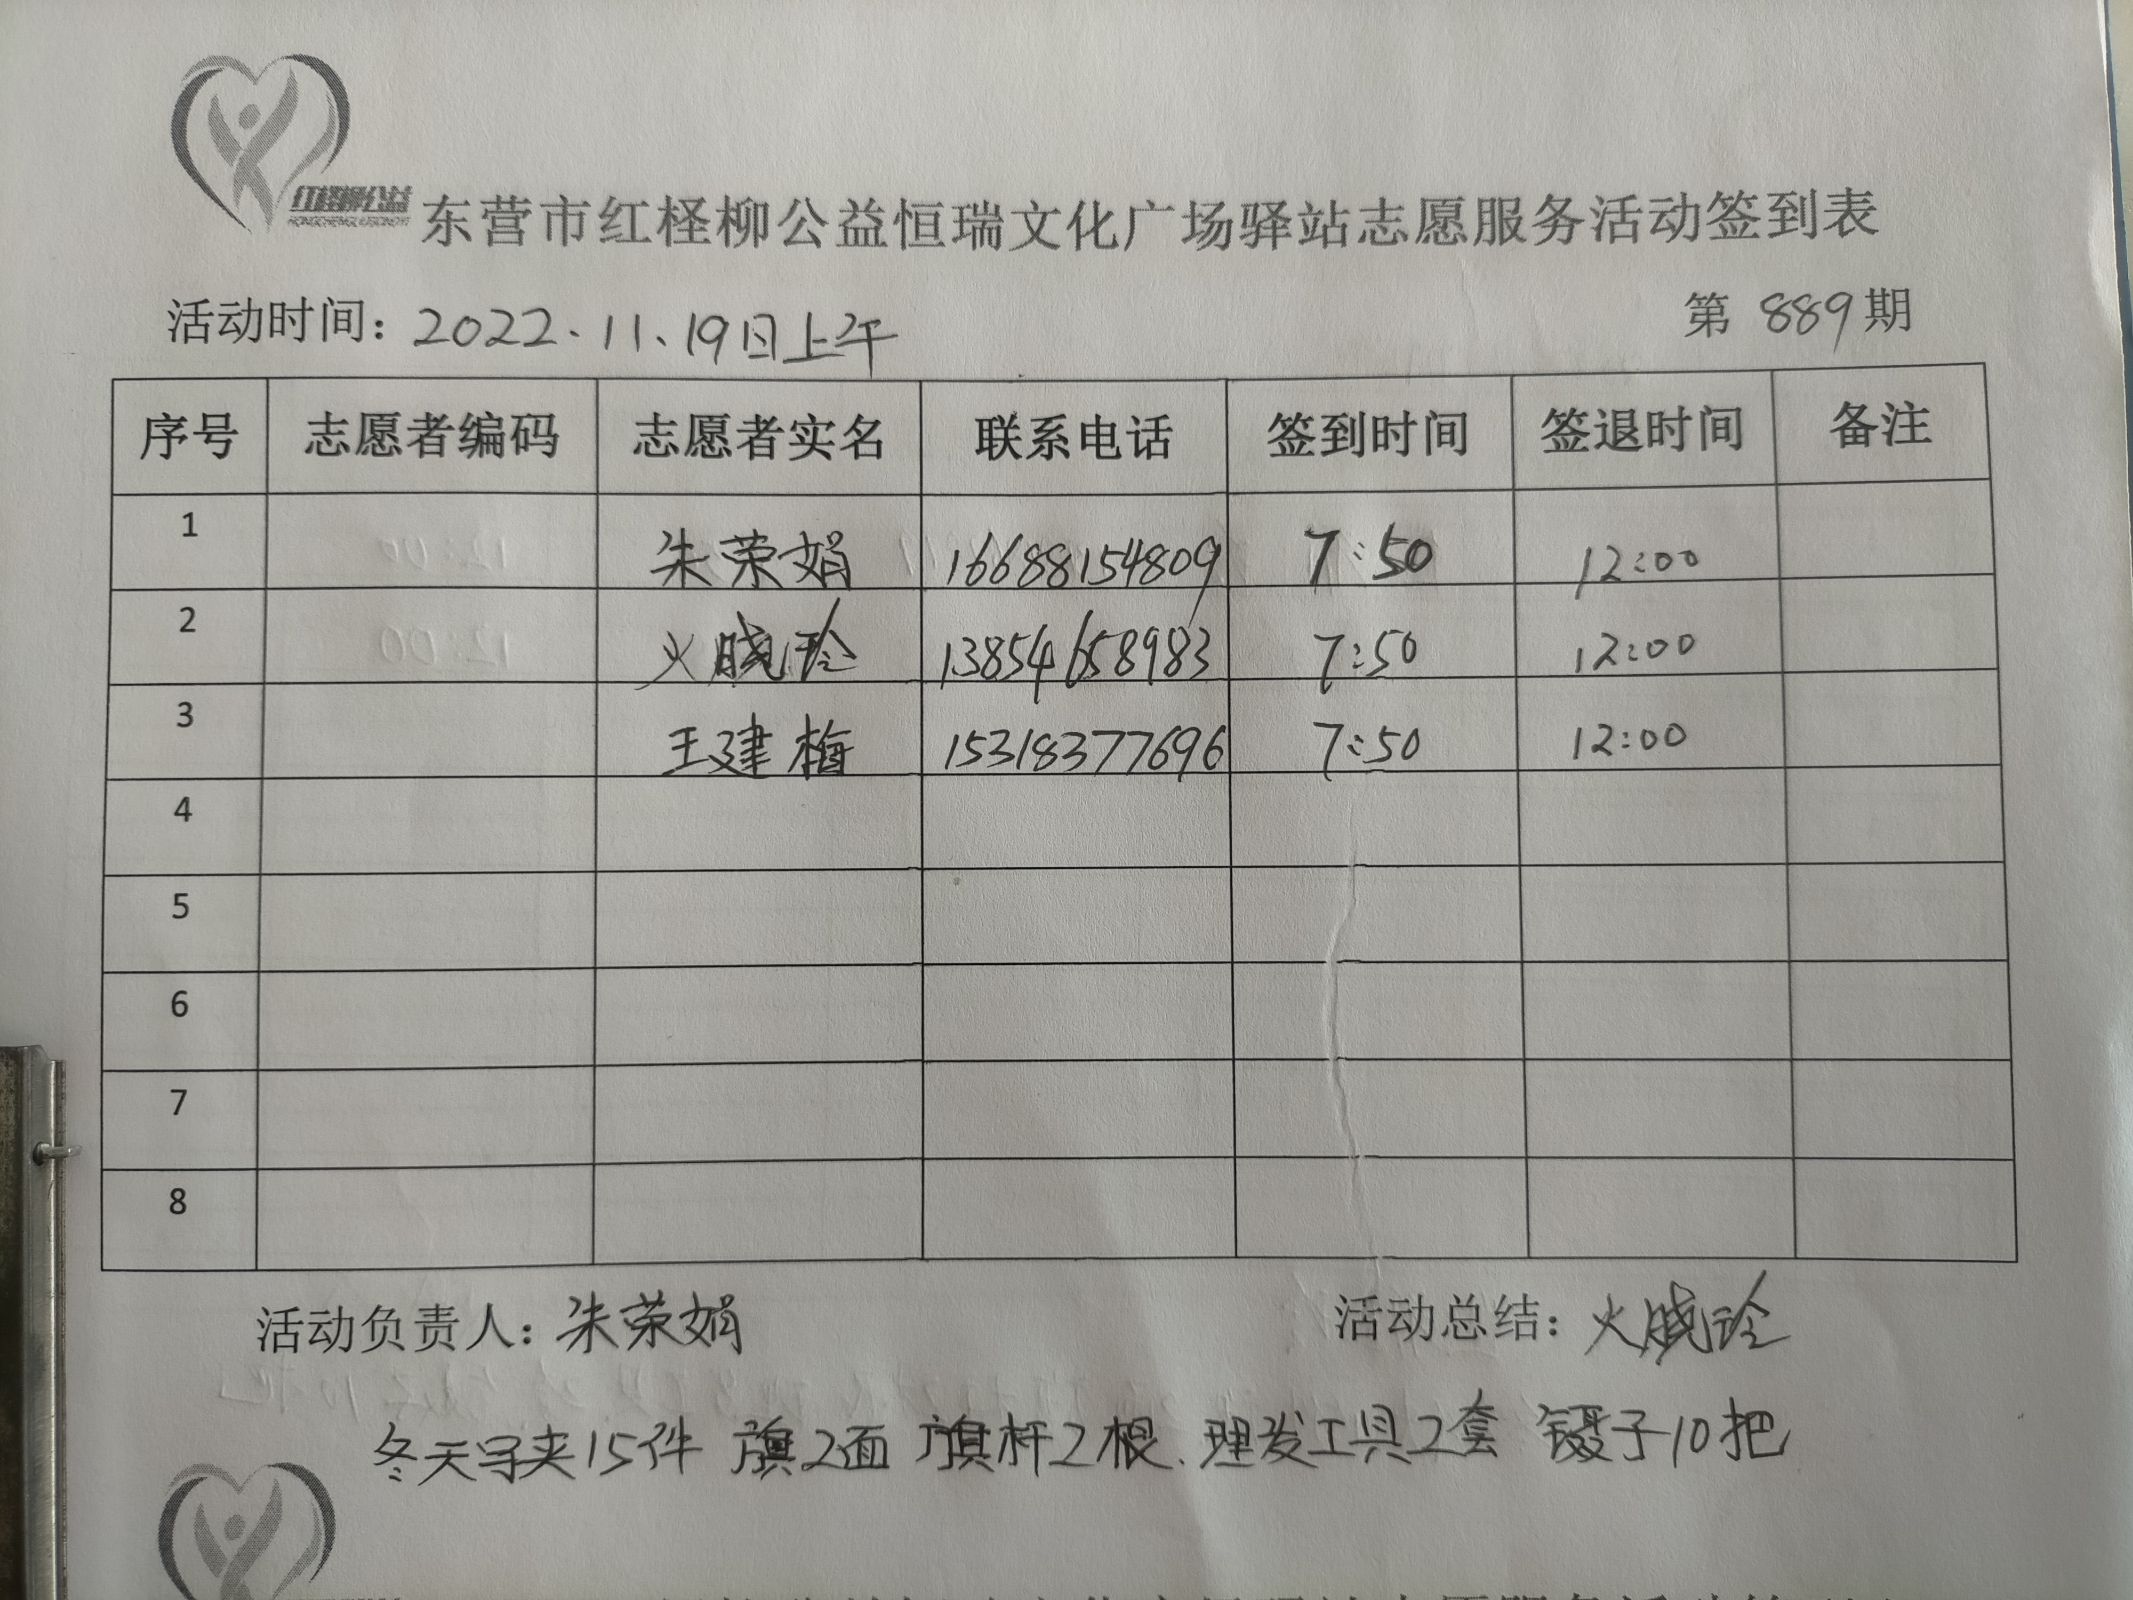 红柽柳公益
HONGCHENGLIUGONGYI
东营市红柽柳公益恒瑞文化广场驿站志愿服务活动签到表
活动时间：2022.11.19日上午 第 889 期
序号 志愿者编码 志愿者实名 联系电话 签到时间 签退时间 备注
1 朱荣娟 16688154809 7:50 12:00
2 火晓玲 13854658983 7:50 12:00
3 王建梅 15318377696 7:50 12:00
4
5
6
7
8
活动负责人：朱荣娟 活动总结：火晓玲
冬天马夹15件 旗2面 旗杆2根、理发工具2套 镊子10把